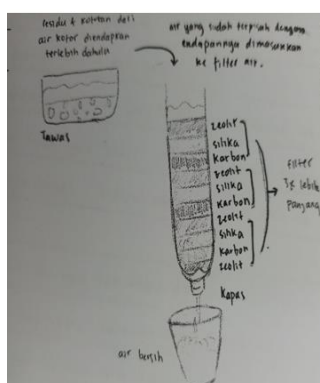 residu & kotoran dari
air kotor diendapkan
terlebih dahulu
air yang sudah terpisah dengan
endapannya dimasukan
ke filter air.
Tawas
zeolit
silika
karbon
zeolit
silika
karbon
zeolit
silika
karbon
zeolit
filter
3x lebih
panjang
Kapas
air bersih